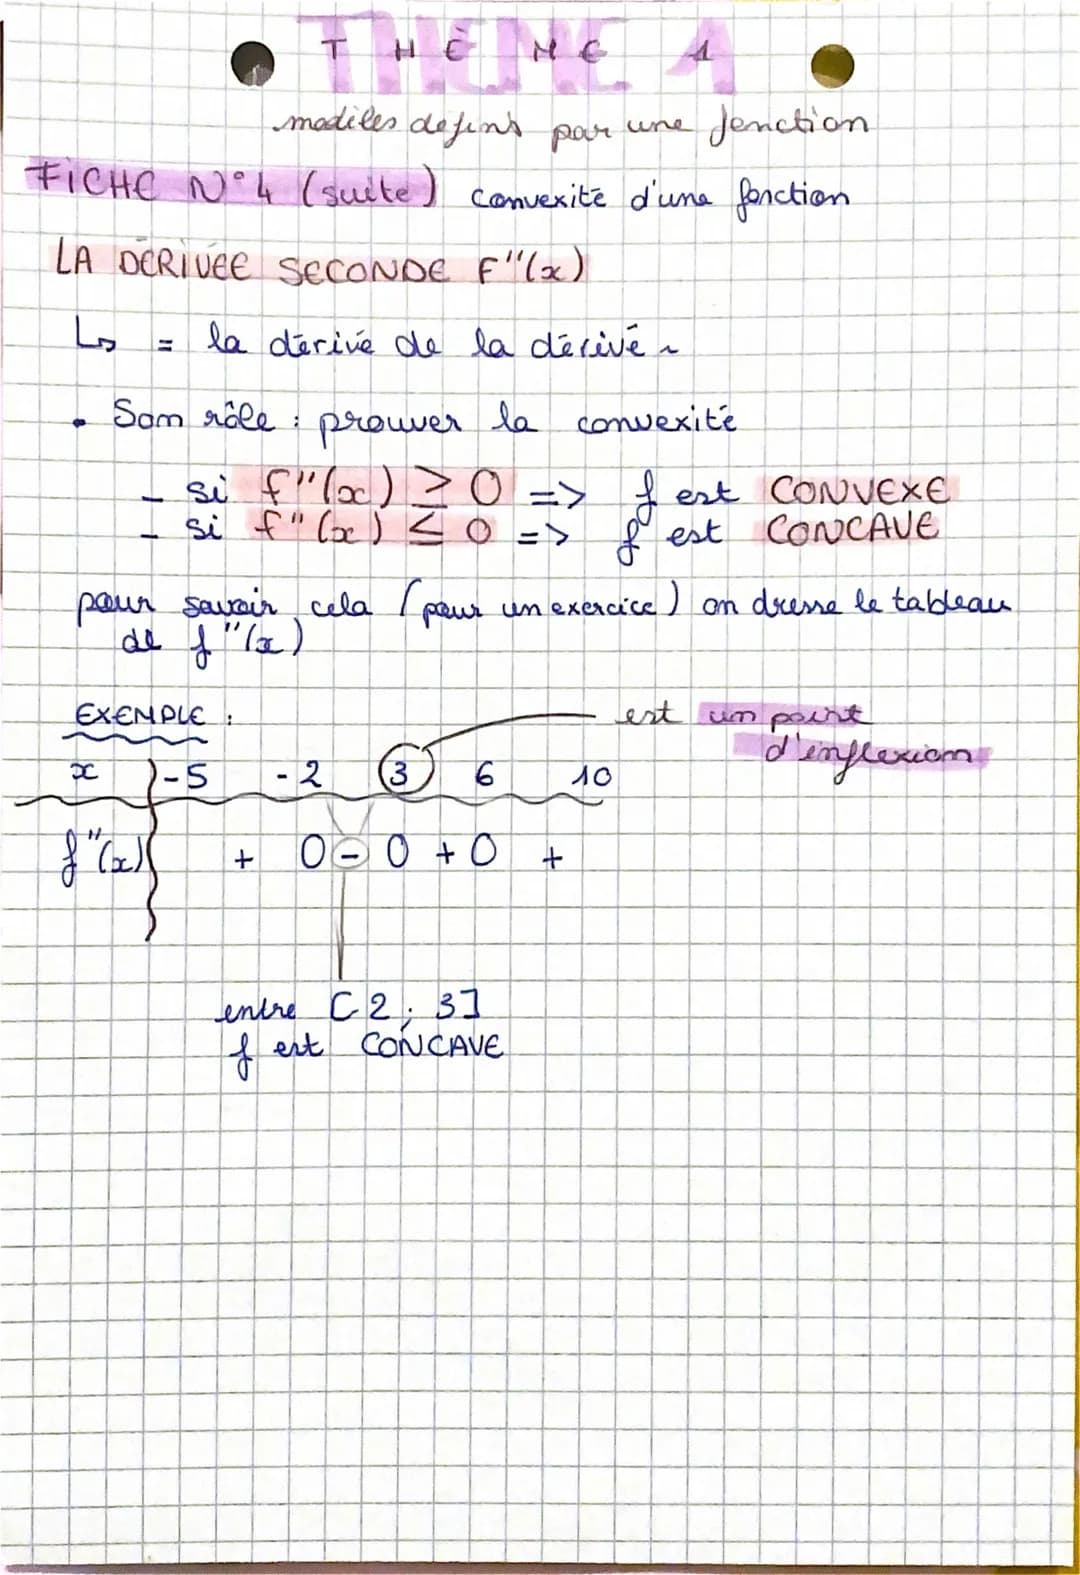 THÈME 1
modèles définis par une fonction
FICHE N°4 (suite) convexité d'une fonction
LA DÉRIVÉE SECONDE F"(x)
↳ = la dérivé de la dérivé ~
• Son rôle : prouver la convexité
- si f"(x) ≥ 0 => f est CONVEXE
- si f"(x) ≤ 0 => f est CONCAVE
pour savoir cela (pour un exercice) on dresse le tableau
de f"(x)
EXEMPLE :
est un point
d'inflexion
x -5 -2 3 6 10
f"(x) + 0 - 0 + 0 +
entre [2; 3]
f est CONCAVE